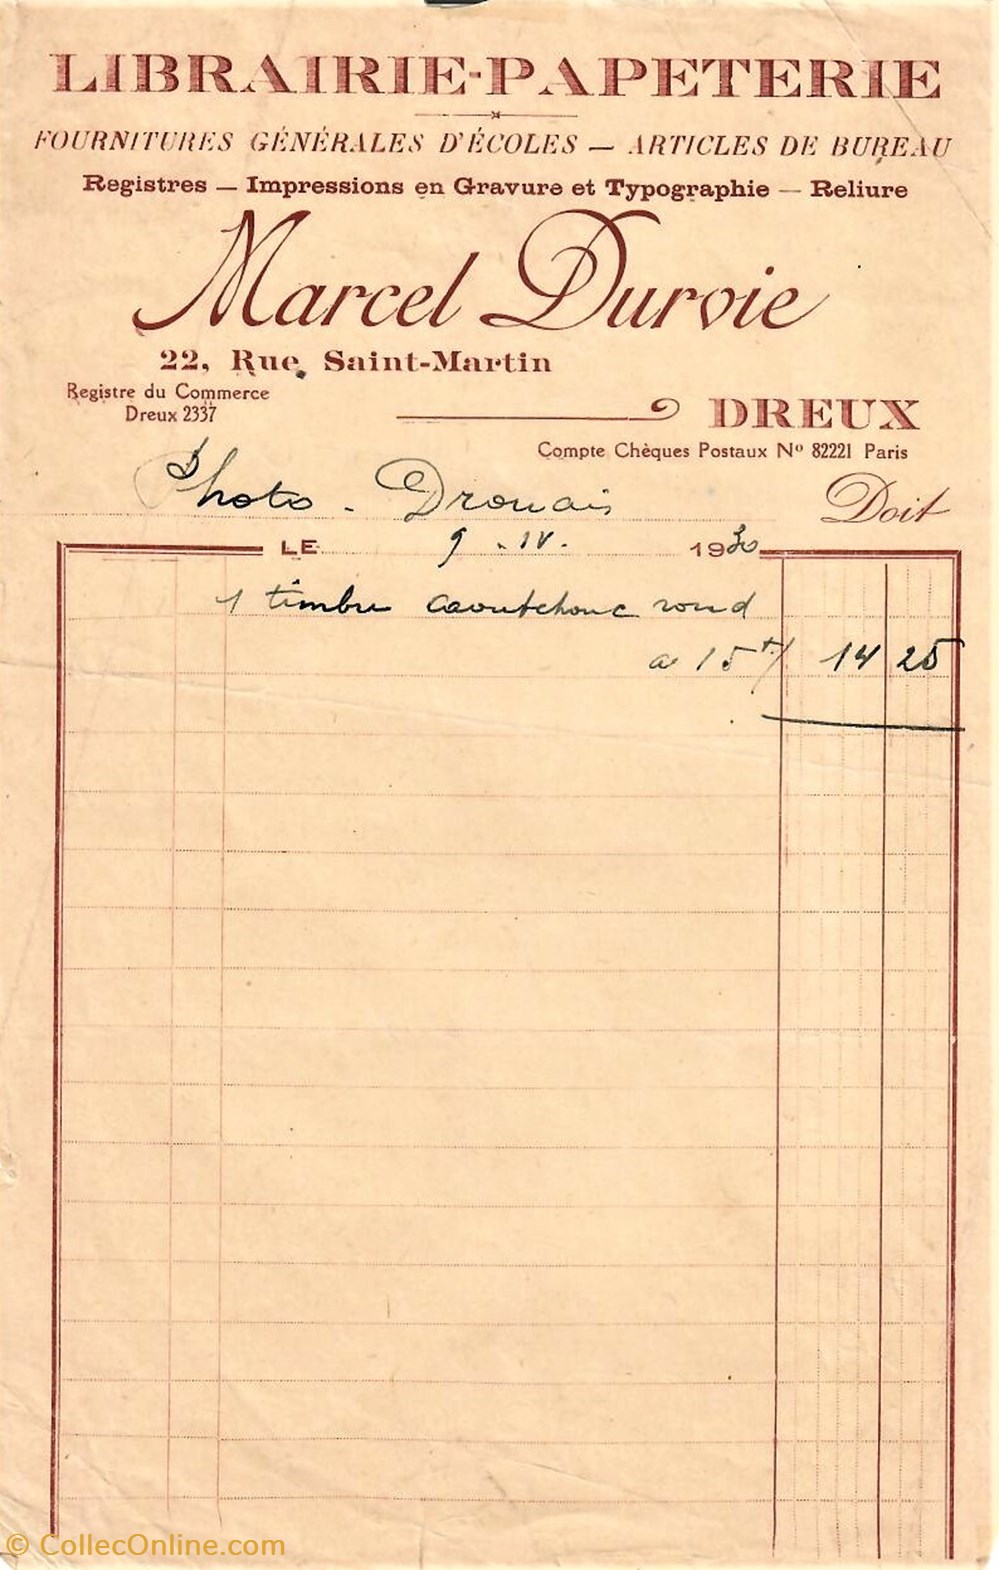 LIBRAIRIE-PAPETERIE
FOURNITURES GÉNÉRALES D'ÉCOLES — ARTICLES DE BUREAU
Registres — Impressions en Gravure et Typographie — Reliure
Marcel Durvie
22, Rue Saint-Martin
Registre du Commerce
Dreux 2337
DREUX
Compte Chèques Postaux Nº 82221 Paris
Photo - Drouais Doit
LE 9 - IV. 1930
1 timbre caoutchouc rond
a 15 14 25
© CollecOnline.com